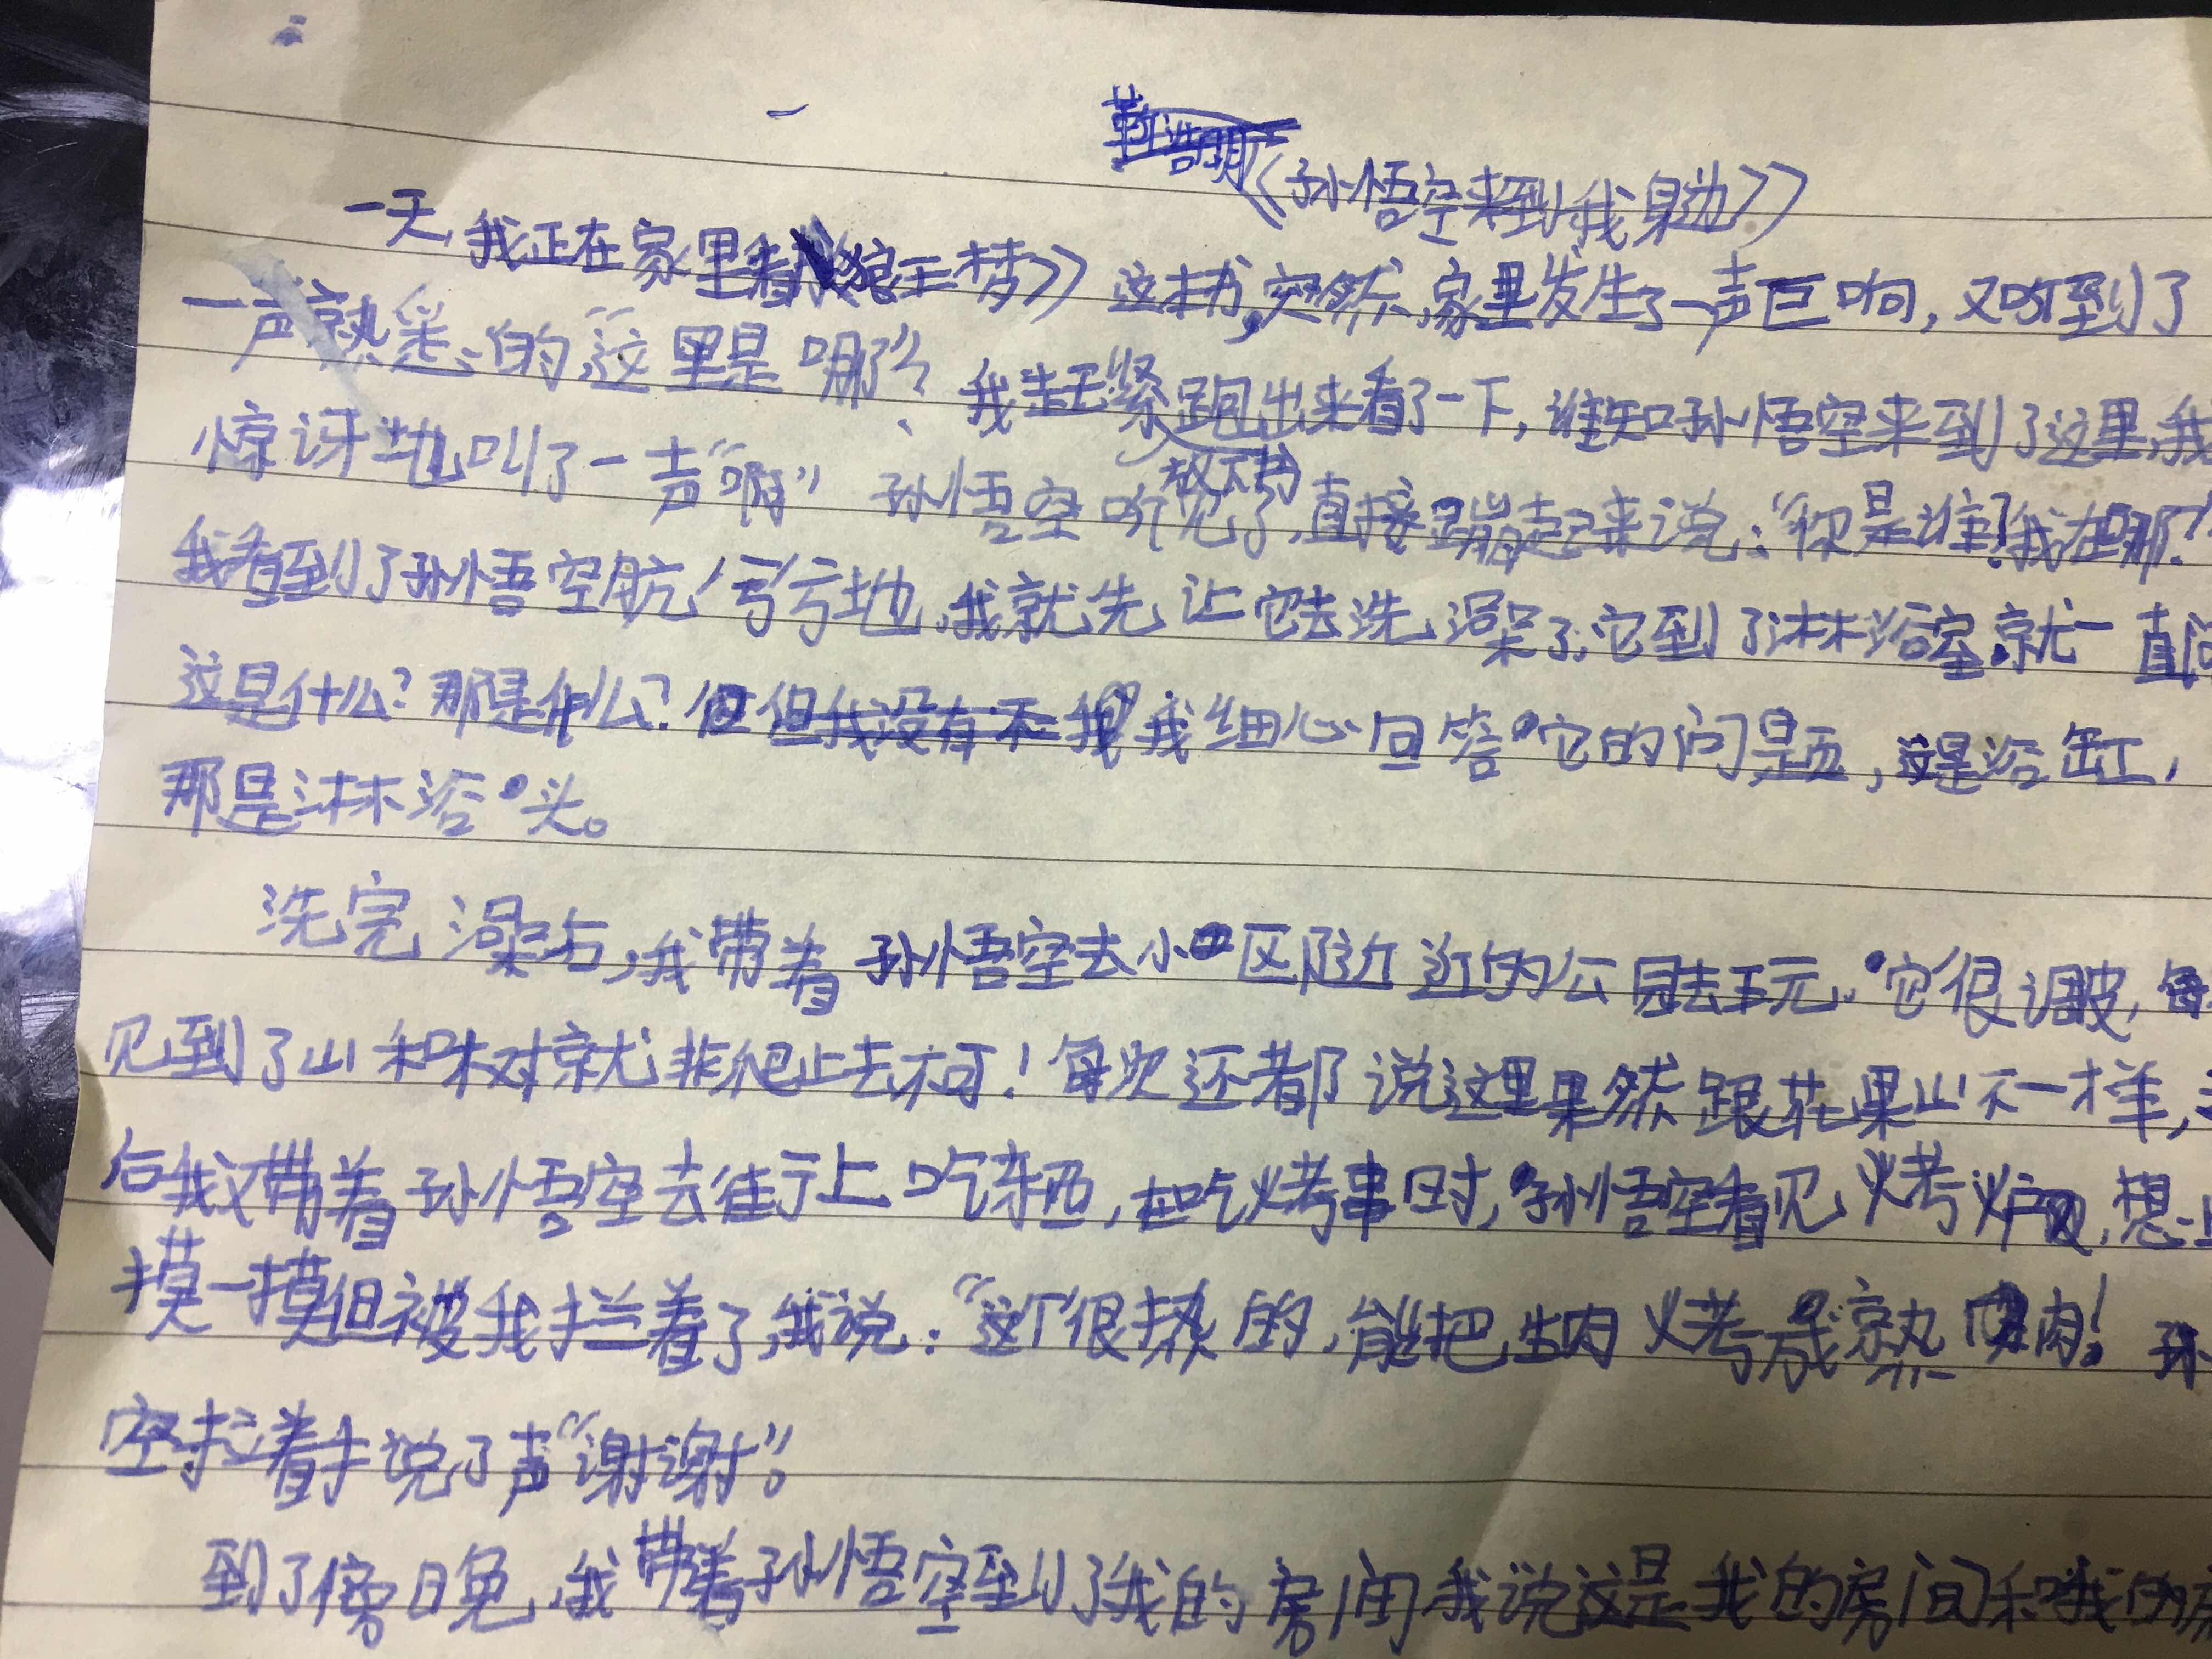 《孙悟空来到我身边》
一天,我正在家里看《狼王梦》这本书,突然,家里发生了一声巨响,又听到了
一声熟悉的“这里是哪、我赶紧跑出来看了一下,谁知孙悟空来到了这里,我
放下书
惊讶地叫了一声“啊”孙悟空听见了,直接蹦起来说:“你是谁?我在哪?
我看到了孙悟空脏兮兮地,我就先让它去洗澡了,它到了淋浴室,就一直问
这是什么?那是什么?我细心回答它的问题,这是浴缸,
那是淋浴头。
洗完澡后,我带着孙悟空去小区附近的公园去玩。它很调皮,每
见到了山和树就非爬上去不可!每次还都说这里果然跟花果山不一样,
后我又带着孙悟空去街上吃东西,在吃烤串时,孙悟空看见烤炉,想
摸一摸但被我拦着了,我说:“这个很热的,能把生肉烤成熟肉!孙
空拉着手说了声“谢谢”。
到了傍晚,我带着孙悟空到了我的房间我说这是我的房间和我的